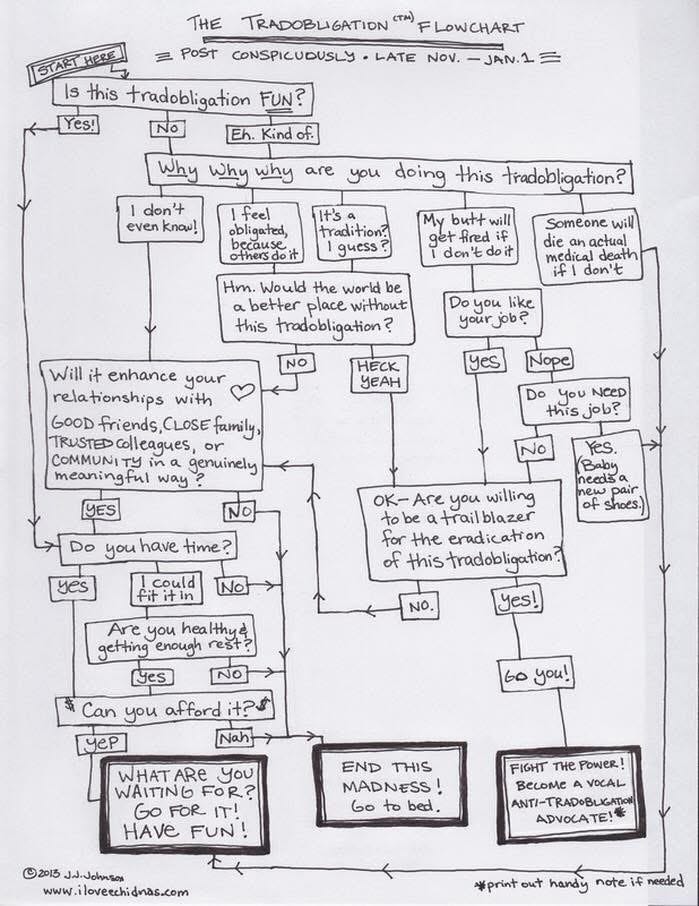 THE TRADOBLIGATION (TM) FLOWCHART
POST CONSPICUOUSLY • LATE NOV. — JAN. 1
START HERE
Is this tradobligation FUN?
Yes!
No
Eh. Kind of.
Why Why why are you doing this tradobligation?
I don't
even know!
I feel
obligated,
because
others do it
It's a
tradition?
I guess?
My butt will
get fired if
I don't do it
Someone will
die an actual
medical death
if I don't
Hm. Would the world be
a better place without
this tradobligation?
NO
HECK
YEAH
Do you like
your job?
yes
Nope
Do you NEED
this job?
NO
Yes.
(Baby
needs a
new pair
of shoes.)
Will it enhance your
relationships with
GOOD friends, CLOSE family,
TRUSTED colleagues, or
COMMUNITY in a genuinely
meaningful way?
YES
NO
OK— Are you willing
to be a trailblazer
for the eradication
of this tradobligation?
NO.
Yes!
Do you have time?
yes
I could
fit it in
NO
Are you healthy &
getting enough rest?
yes
NO
GO you!
$ Can you afford it? $
yep
Nah
WHAT ARE YOU
WAITING FOR?
GO FOR IT!
HAVE FUN!
END THIS
MADNESS!
Go to bed.
FIGHT THE POWER!
BECOME A VOCAL
ANTI-TRADOBLIGATION
ADVOCATE! *
© 2013 J.J. Johnson
www.iloveechidnas.com
*print out handy note if needed